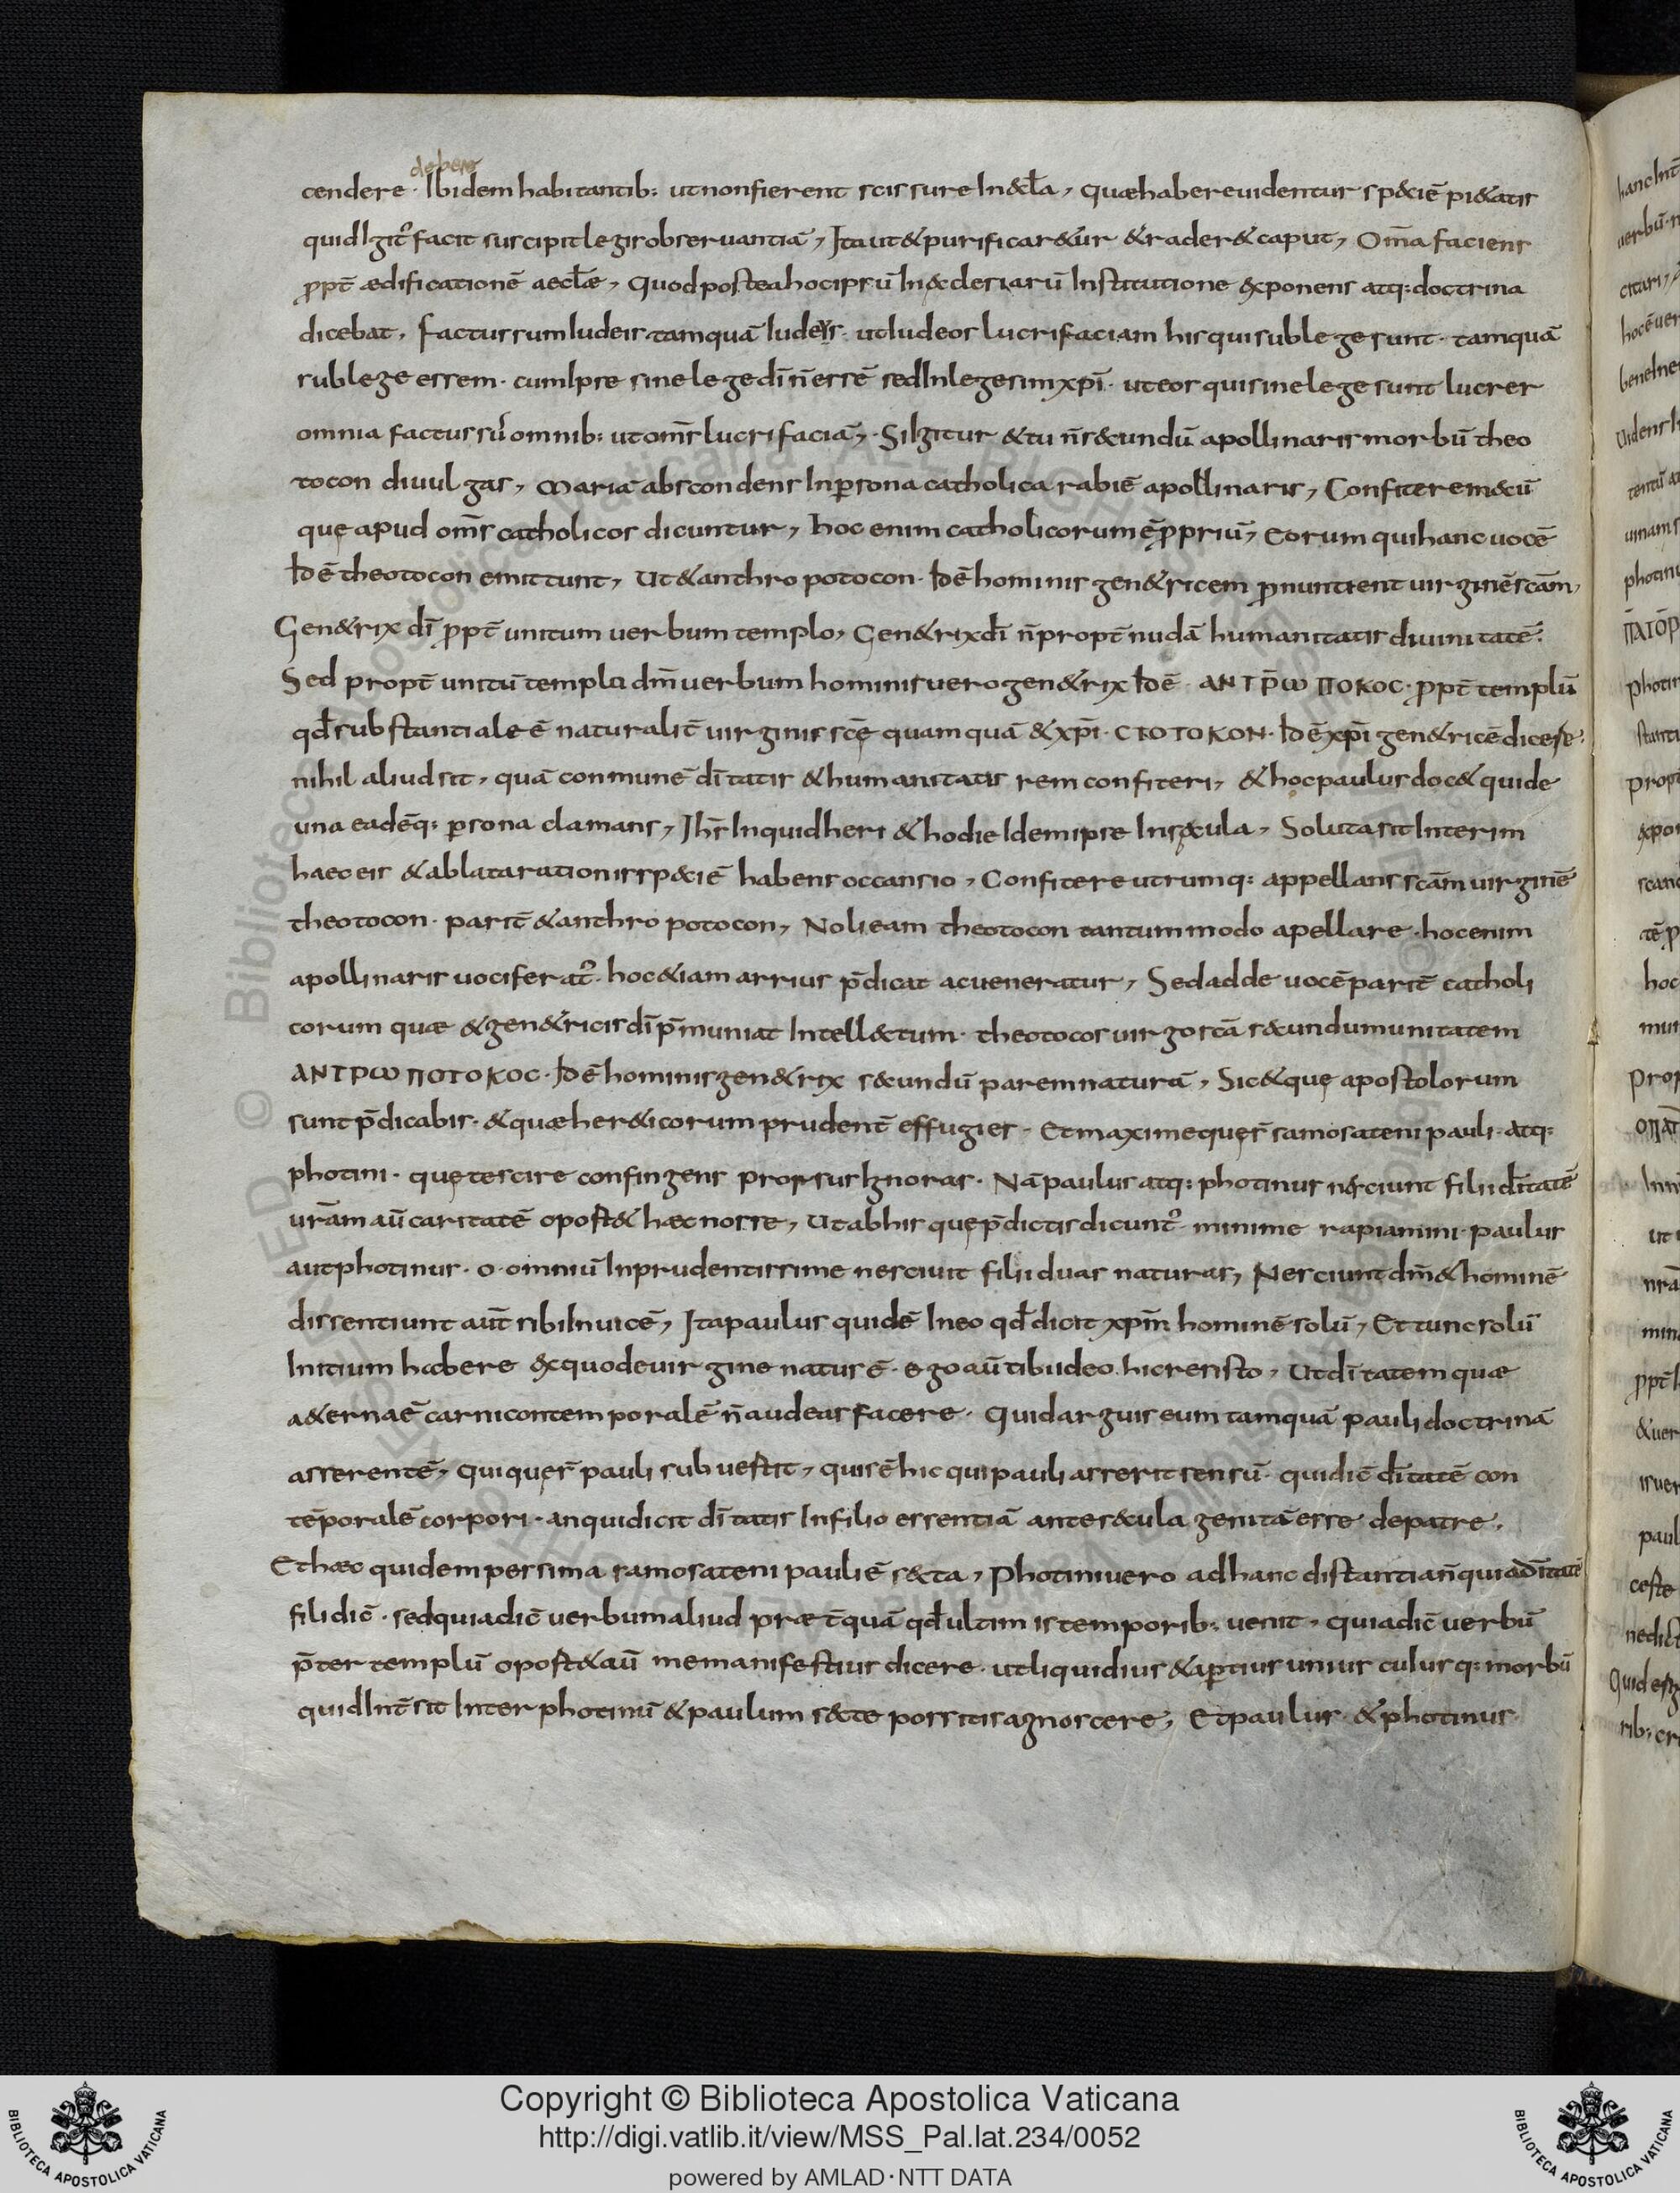 debere
cendere · Ibidem habitantib: ut non fierent scissure In &cl̄a, quæ habere uidentur sp&ciē pi&atis
quid Igit᷒ facit suscipit legis obseruantiā, Ita ut & purificar&ur & rader& caput, Om̄a faciens
ꝓpt̄ ædificationē aecl̄æ, quod postea hoc ipsū In &clesiarū Institutione exponens atq: doctrina
dicebat, factus sum Iudeis tamquā Iudeus · ut Iudeos lucrifaciam his qui sub lege sunt · tamquā
sub lege essem · cum Ipse sine lege dī n̄ essē sed In lege sim xpī · ut eos qui sine lege sunt lucrer
omnia factus sū omnib: ut om̄s lucrifaciā, · Si Igitur & tu n̄ s&cundū apollinaris morbū theo
tocon diuulgas, Mariā abscondens In ꝑsona catholica rabiē apollinaris, Confitere m&cū
quę apud om̄s catholicos dicuntur, hoc enim catholicorum ē ꝓpriū, Eorum qui hanc uocē
Id ē theotocon emittunt, Ut & anthropotocon · Id ē hominis gen&ricem ꝓnuntient uirginē scām,
Gen&rix dī ꝓpt̄ unitum uerbum templo, Gen&rix dī n̄ propt̄ nudā humanitatis diuinitatē:
Sed propt̄ unitū templo dm̄ uerbum hominis uero gen&rix Id ē · ΑΝΤΡ̄Ω ΠΟΚΟС · ꝓpt̄ templū
qd̄ substantiale ē naturalit̄ uirginis scē quamquā & xpī · CTOTOKON · Id ē xpī gen&ricē dicere:
nihil aliud sit, quā conmunē dītatis & humanitatis rem confiteri, & hoc paulus doc& qui de
una eadēq: ꝑsona clamans, Ihs̄ Inquid heri & hodie Idem ipse In sęcula, Soluta sit Interim
haec eis & ablata rationis sp&ciē habens occansio, Confitere utrumq: appellans scām uirginē
theotocon · parit̄ & anthropotocon, Noli eam theotocon tantummodo apellare · hoc enim
apollinaris uociferat᷒ · hoc &iam arrius p̄dicat ac ueneratur, Sed adde uocē parit̄ catholi
corum quæ & gen&ricis dī p̄muniat Intell&tum · theotocos uirgo scā s&cundum unitatem
ΑΝΤΡΩΠΟΤΟΚΟС · Id ē hominis gen&rix s&cundū parem naturā, Sic & quę apostolorum
sunt p̄dicabis · & quæ her&icorum prudent̄ effugies · Et maxime quę s̄ samosateni pauli · atq:
photini · quę te scire confingens prorsus Ignoras · Nā paulus atq: photinus nesciunt filii dītatē
uram̄ aū caritatē oport& hæc nosse, Ut ab his quę p̄dictis dicunt᷒ minime rapiamini · paulus
aut photinus · o · omniū Inprudentissime nesciuit filii duas naturas, Nesciunt dm̄ & hominē
dissentiunt aut̄ sibi Inuicē, Ita paulus quidē In eo qd̄ dicit xpm̄ hominē solū, Et tunc solū
Initium habere ex quo de uirgine natus ē · ego aū tibi ideo hic resisto, Ut dītatem quæ
a&ernaē carni contemporalē n̄ audeas facere · Quid arguis eum tamquā pauli doctrinā
asserentē, qui quę s̄ pauli subuertit, quis ē hic qui pauli asserit sensū · qui dic̄ dītatē con
tēporalē corpori · an qui dicit dītatis In filio essentiā ante s&cula genitā esse de patre,
Et hæc quidem pessima samosateni pauli ē s&ta, Photini uero ad hanc distantia n̄ quia dītatē
fili dic̄ · sed quia dic̄ uerbum aliud præt̄ quā qd̄ ultimis temporib: uenit, quia dic̄ uerbū
p̄ter templū oport& aū me manifestius dicere · ut liquidius & aꝑtius unius culusq: morbū
quid Int̄sit Inter photinū & paulum s&te possitis agnoscere, Et paulus & photinus